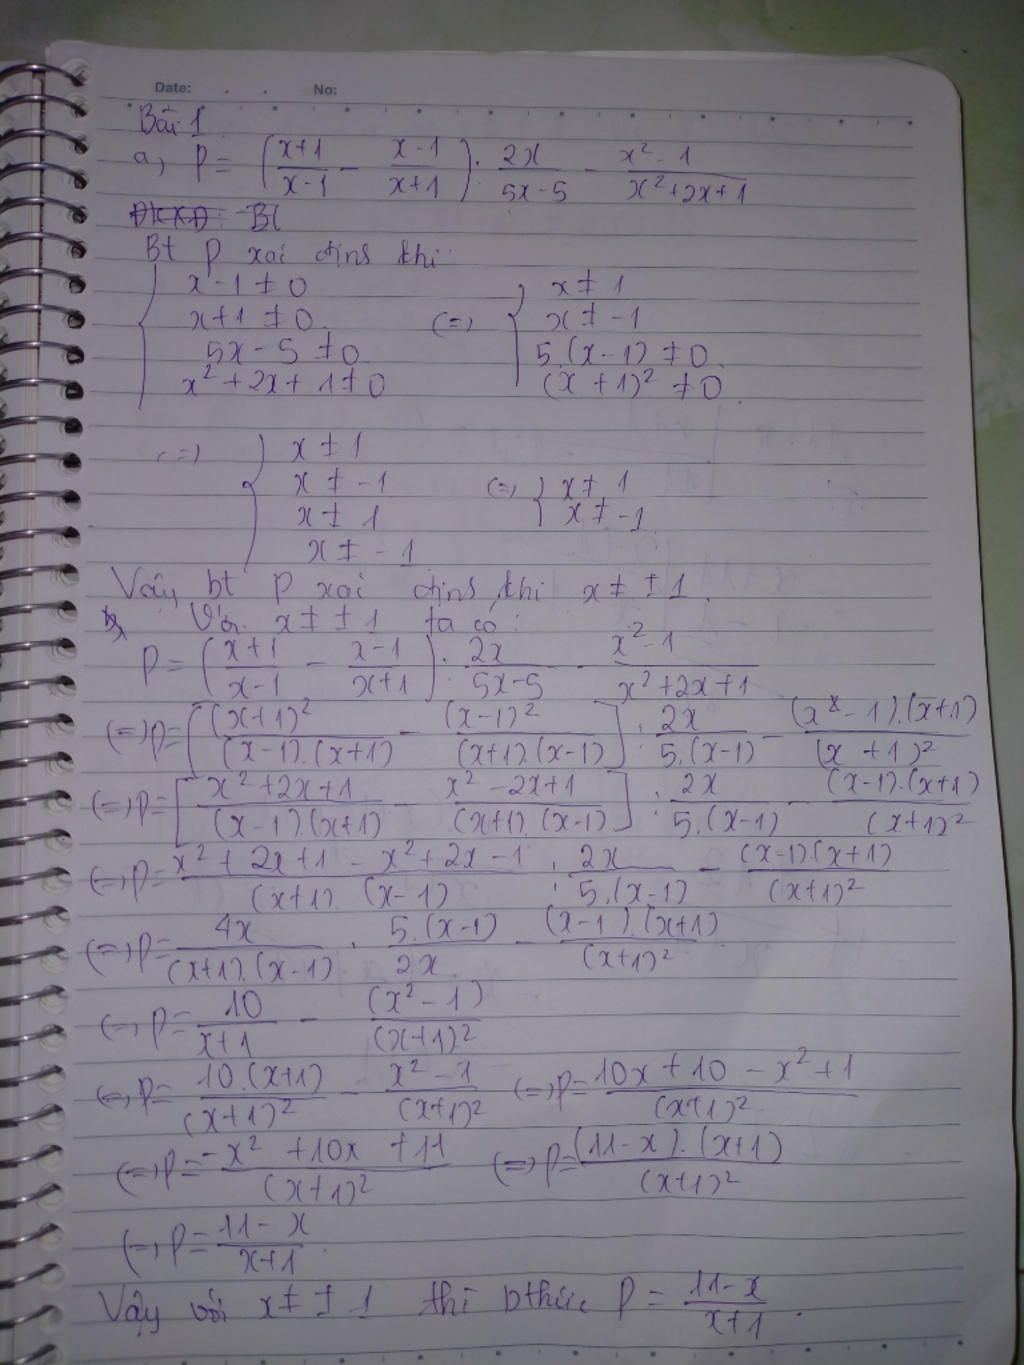 Date: No:
Bài 1
a, P = (x+1/x-1 - x-1/x+1) : 2x/5x-5 - x²-1/x²+2x+1
ĐKXĐ: Bt
Bt P xác định khi
{ x-1 ≠ 0 { x ≠ 1
x+1 ≠ 0 (=) x ≠ -1
5x-5 ≠ 0 5.(x-1) ≠ 0
x²+2x+1 ≠ 0 (x+1)² ≠ 0
(=) { x ≠ 1
x ≠ -1 (=) { x ≠ 1
x ≠ 1 x ≠ -1
x ≠ -1
Vậy bt P xác định khi x ≠ ±1.
b, Với x ≠ ±1 ta có:
P = (x+1/x-1 - x-1/x+1) : 2x/5x-5 - x²-1/x²+2x+1
(=) P = [(x+1)²/(x-1).(x+1) - (x-1)²/(x+1).(x-1)] : 2x/5.(x-1) - (x-1).(x+1)/(x+1)²
(=) P = [x²+2x+1/(x-1).(x+1) - x²-2x+1/(x+1).(x-1)] : 2x/5.(x-1) - (x-1).(x+1)/(x+1)²
(=) P = x²+2x+1-x²+2x-1/(x+1).(x-1) : 2x/5.(x-1) - (x-1).(x+1)/(x+1)²
(=) P = 4x/(x+1).(x-1) . 5.(x-1)/2x - (x-1).(x+1)/(x+1)²
(=) P = 10/x+1 - (x²-1)/(x+1)²
(=) P = 10.(x+1)/(x+1)² - x²-1/(x+1)² (=) P = 10x+10-x²+1/(x+1)²
(=) P = -x²+10x+11/(x+1)² (=) P = (11-x).(x+1)/(x+1)²
(=) P = 11-x/x+1
Vậy với x ≠ ±1 thì bthức P = 11-x/x+1.